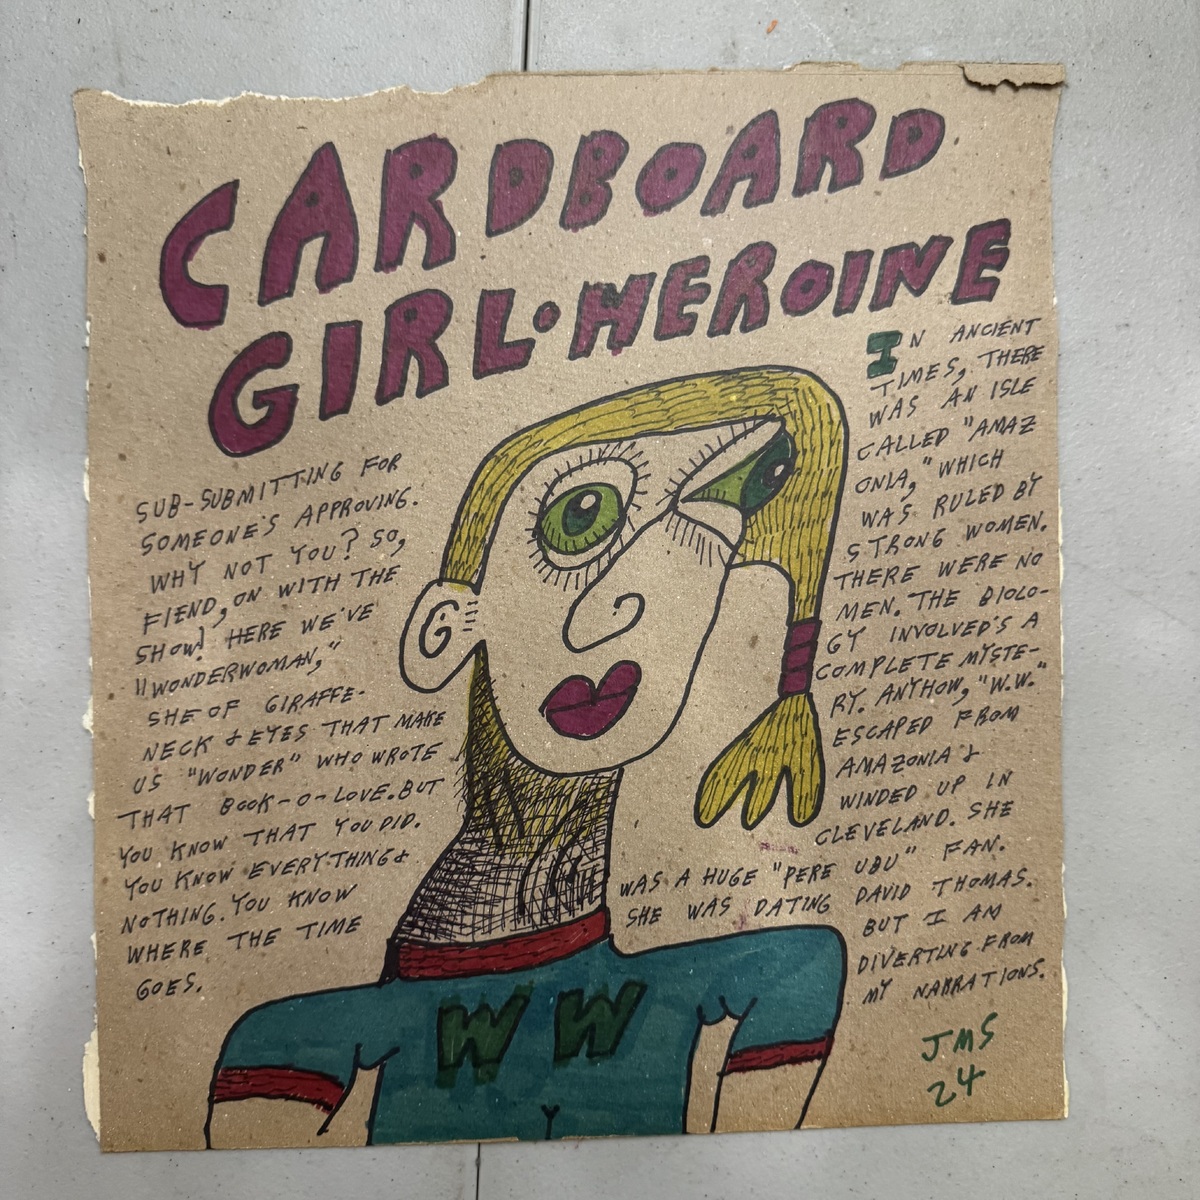 CARDBOARD
GIRL·HEROINE
SUB-SUBMITTING FOR
SOMEONE'S APPROVING.
WHY NOT YOU? SO,
FIEND, ON WITH THE
SHOW! HERE WE'VE
"WONDERWOMAN,"
SHE OF GIRAFFE-
NECK & EYES THAT MAKE
US "WONDER" WHO WROTE
THAT BOOK-O-LOVE. BUT
YOU KNOW THAT YOU DID.
YOU KNOW EVERYTHING &
NOTHING. YOU KNOW
WHERE THE TIME
GOES.
IN ANCIENT
TIMES, THERE
WAS AN ISLE
CALLED "AMAZ
ONIA," WHICH
WAS RULED BY
STRONG WOMEN.
THERE WERE NO
MEN. THE BIOLO-
GY INVOLVED'S A
COMPLETE MYSTE-
RY. ANYHOW, "W.W."
ESCAPED FROM
AMAZONIA &
WINDED UP IN
CLEVELAND. SHE
WAS A HUGE "PERE UBU" FAN.
SHE WAS DATING DAVID THOMAS.
BUT I AM
DIVERTING FROM
MY NARRATIONS.
WW
JMS
24